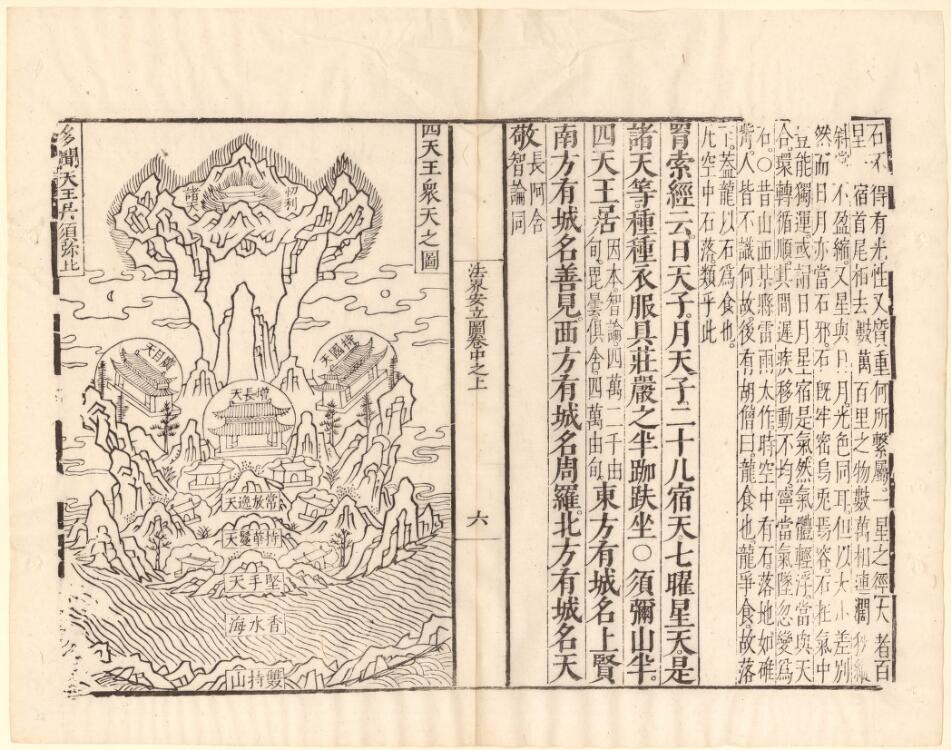 石不得有光性又質重何所繫屬一星之徑大者百
里一宿首尾相去數萬百里之物數萬相連闊狹縱
斜常不盈縮又星與日月光色同耳但以大小差別
然而日月亦當石邪石旣牢密烏兎焉容石在氣中
豈能獨運或謂日月星宿是氣然氣體輕浮當與天
合環轉循順其間遲疾移動不均寧當氣墜忽變爲
石〇昔山西某縣雷雨太作時空中有石落地如碓
臂人皆不識何故後有胡僧曰龍食也龍爭食故落
下葢龍以石爲食也
凢空中石落類乎此
胃索經云日天子月天子二十八宿天七曜星天是
諸天等種種衣服具莊嚴之半跏趺坐〇須彌山半
四天王居因本智論四萬二千由
旬毘曇俱舍四萬由旬東方有城名上賢
南方有城名善見西方有城名周羅北方有城名天
敬長阿含
智論同
法界安立圖卷中之上
六
四天王衆天之圖
忉利
諸天
增國天
廣目天
增長天
常放逸天
持華鬘天
堅手天
香水海
雙持山
多聞天王居須弥北